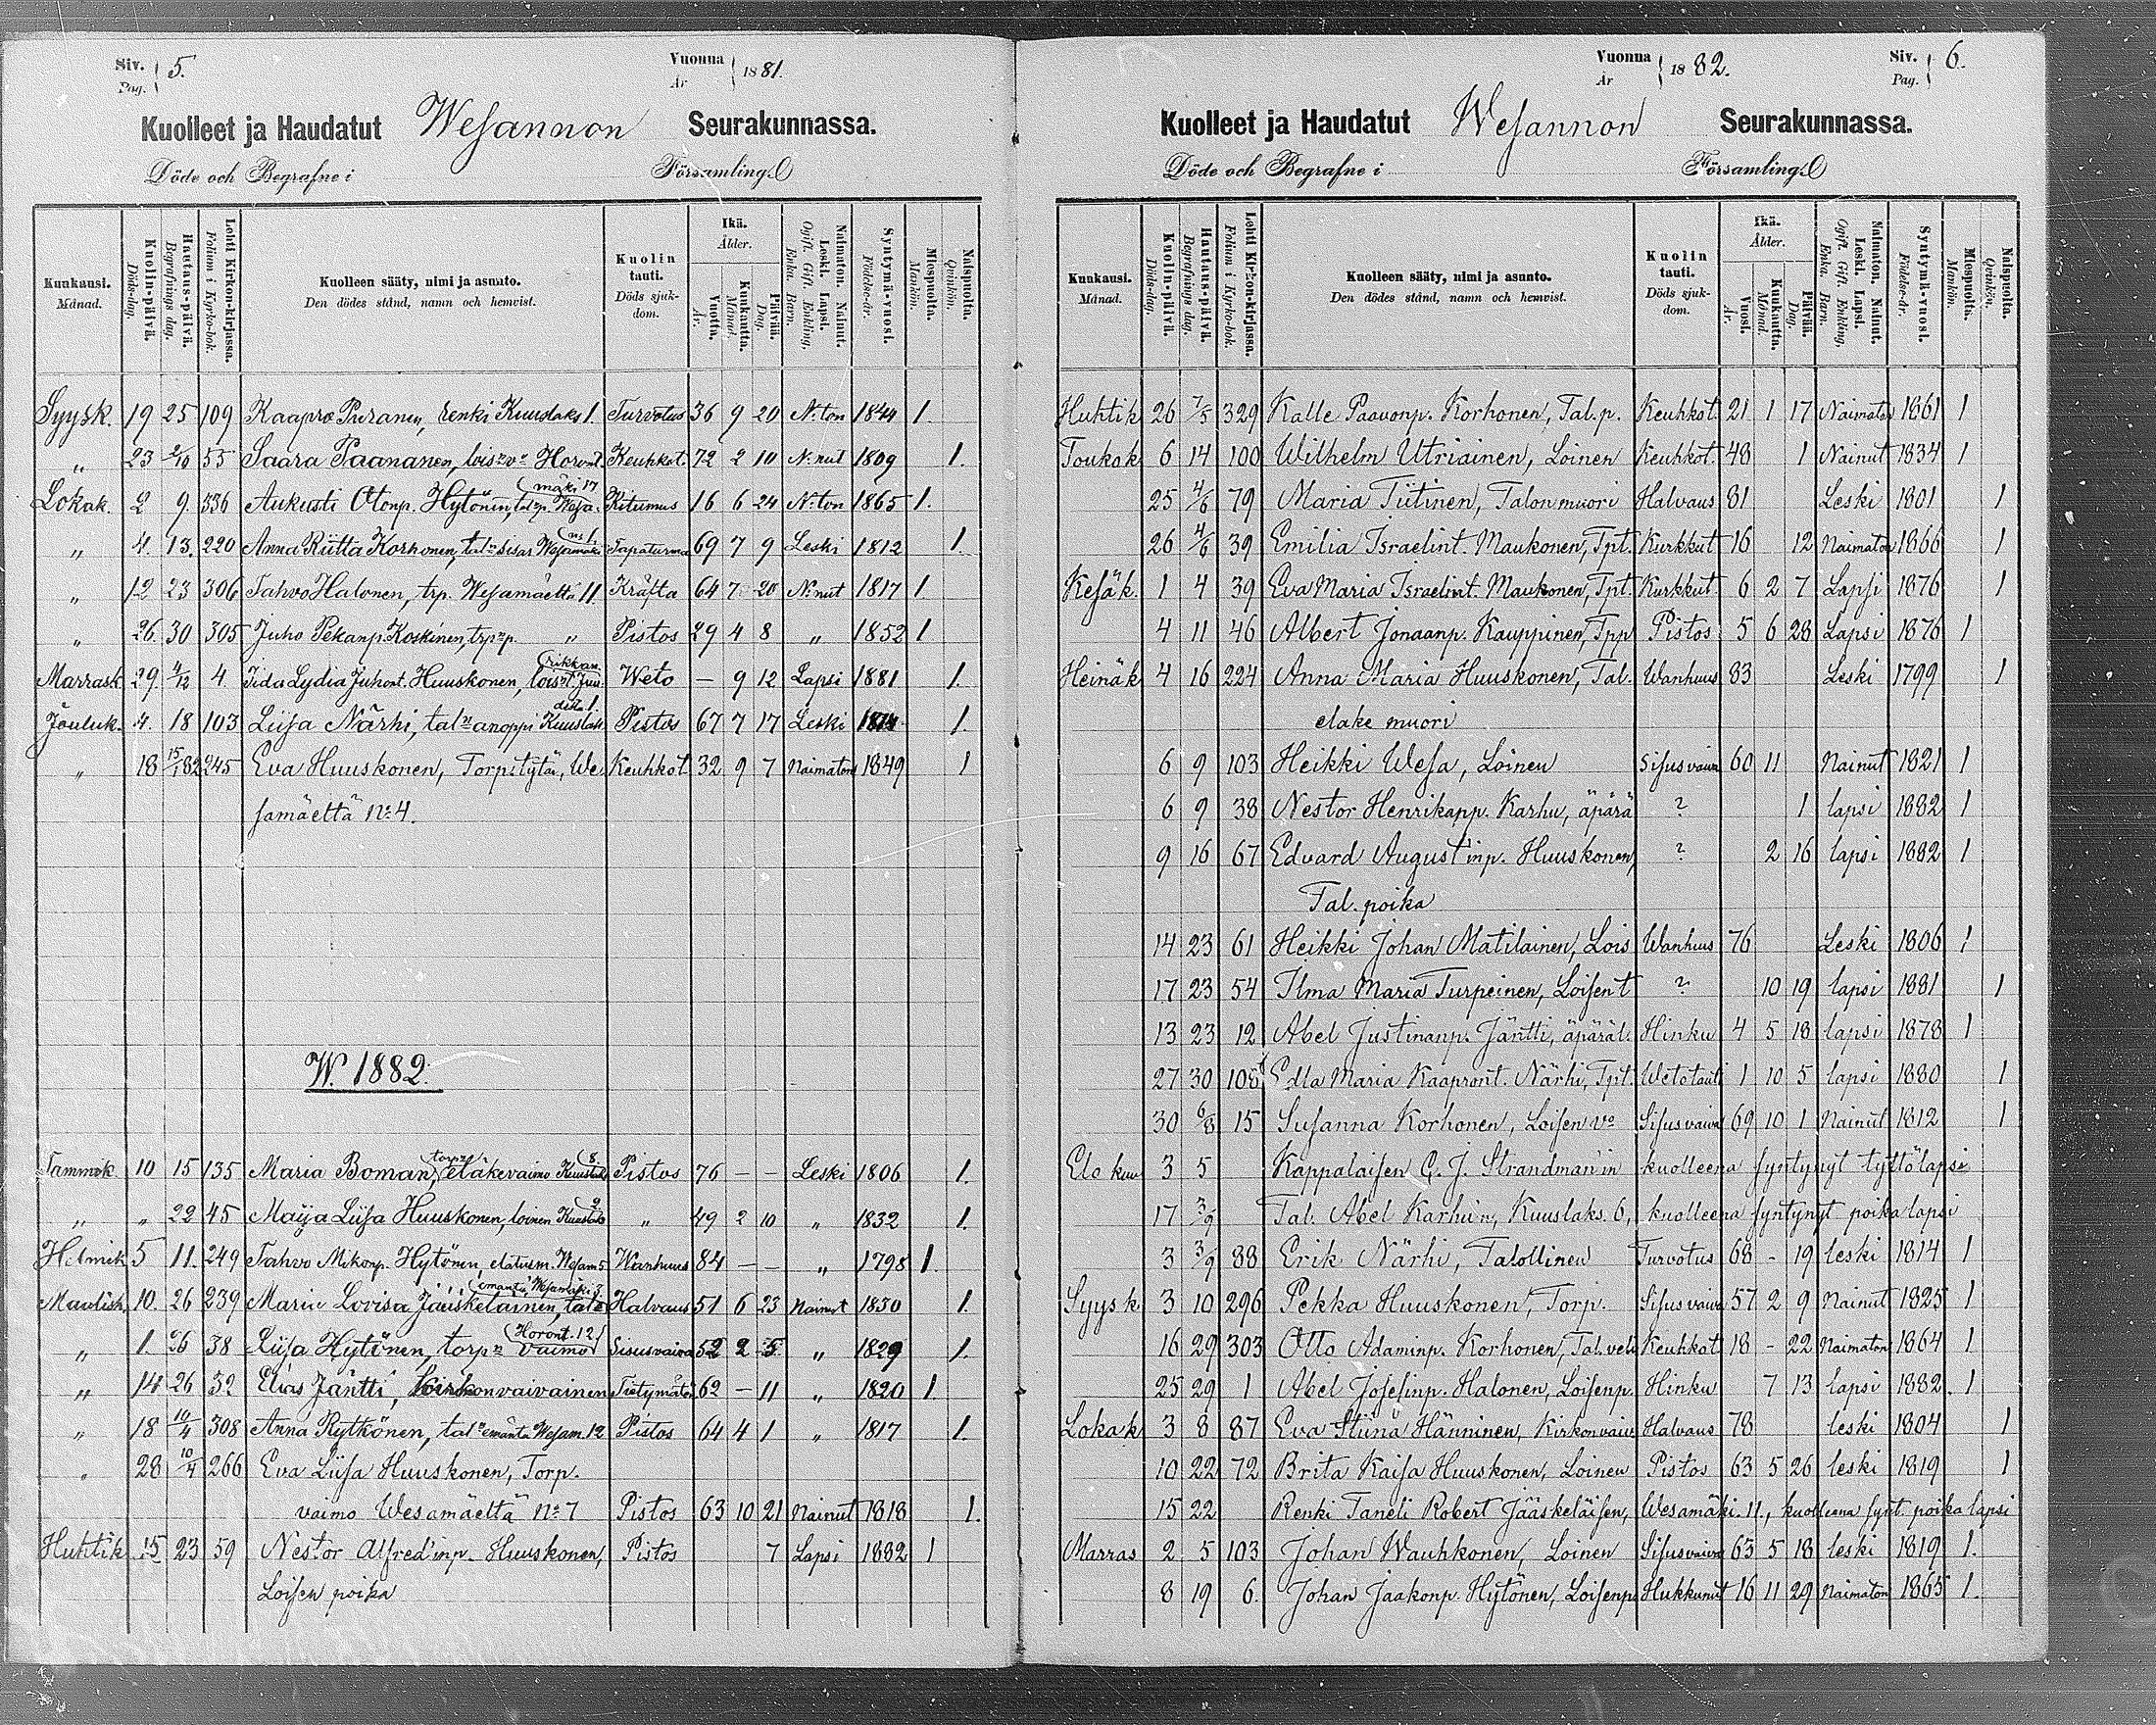 Siv. Pag. 5. Vuonna År 1881.
Kuolleet ja Haudatut Wesannon Seurakunnassa.
Döde och Begrafne i Församling.
Kuukausi. Månad. Kuolin-päivä. Döds-dag. Hautaus-päivä. Begrafnings dag. Lehti Kirkon-kirjassa. Folium i Kyrko-bok. Kuolleen sääty, nimi ja asunto. Den dödes stånd, namn och hemvist. Kuolin tauti. Döds sjukdom. Ikä. Ålder. Vuotta. År. Kuukautta. Månad. Päivää. Dag. Naimaton. Nainut. Leski. Lapsi. Ogift. Gift. Enkling, Enka. Barn. Syntymä-vuosi. Födelse-år. Miespuolta. Mankön. Naispuolta. Qvinkön.
Syysk. 19 25 109 Kaapro Puranen, renki Kuuslaks 1. Turvotus 36 9 20 N:ton 1844 1.
„ 23 2/10 55 Saara Paananen, lois:n v:o Horont. Keuhkot. 72 2 10 N:nut 1809 1.
Lokak. 2 9. 336 Aukusti Otonp. Hytönen, tal:n p. Wesamäki 17 Kitumus 16 6 24 N:ton 1865 1.
„ 4. 13. 220 Anna Riitta Korhonen, tal:n sisar Wesamäki Tapaturma 69 7 9 Leski 1812 1.
„ 12 23 306 Tahvo Halonen, trp. Wesamäeltä 11. Kräfta 64 7 20 N:nut 1817 1.
„ 26. 30 305 Juho Pekanp. Koskinen, trp:n p. „ Pistos 29 4 8 „ 1852 1
Marrask. 29. 4/12 4. Iida Lydia Juhont. Huuskonen, lois:n t. Weto — 9 12 Lapsi 1881 1.
Jouluk. 4. 18 103 Liisa Närhi, tal:n anoppi Kuuslah Pistos 67 7 17 Leski 1814 1.
„ 18 15/1 82 245 Eva Huuskonen, Torpitytär, We- Keuhkot 32 9 7 Naimaton 1849 1
samäeltä N:o 4.
W. 1882.
Tammik. 10 15 135 Maria Boman, torp:n eläkevaimo Kuuslaks 8. Pistos 76 — — Leski 1806 1.
„ „ 22 45 Maija Liisa Huuskonen, loinen Kuuslaks 2 „ 49 2 10 „ 1832 1.
Helmik 5 11. 249 Tahvo Mikonp. Hytönen, elatusm. Wesam 5 Wanhuus 84 — — „ 1798 1.
Maalisk. 10. 26 239 Maria Lovisa Jääskeläinen, tal:n emäntä Wesamäki 3. Halvaus 51 6 23 Nainut 1830 1.
„ 1. 26 38 Liisa Hytönen, torp:n vaimo Horont. 12 Sisusvaiva 52 2 5 „ 1829 1.
„ 14 26 32 Elias Jäntti, Kirkonvaivainen Tietymätön 62 — 11 „ 1820 1
„ 18 10/4 308 Anna Rytkönen, tal:n emäntä Wesam. 12 Pistos 64 4 1 „ 1817 1.
„ 28 10/4 266 Eva Liisa Huuskonen, Torp.
vaimo Wesamäeltä N:o 7 Pistos 63 10 21 Nainut 1818 1.
Huhtik 15 23 59 Nestor Alfred'inp. Huuskonen, Pistos 7 Lapsi 1882 1
Loisen poika
Vuonna År 1882. Siv. Pag. 6.
Kuolleet ja Haudatut Wesannon Seurakunnassa.
Döde och Begrafne i Församling.
Kuukausi. Månad. Kuolin-päivä. Döds-dag. Hautaus-päivä. Begrafnings dag. Lehti Kirkon-kirjassa. Folium i Kyrko-bok. Kuolleen sääty, nimi ja asunto. Den dödes stånd, namn och hemvist. Kuolin tauti. Döds sjukdom. Ikä. Ålder. Vuosi. År. Kuukautta. Månad. Päivää. Dag. Naimaton. Nainut. Leski. Lapsi. Ogift. Gift. Enkling, Enka. Barn. Syntymä-vuosi. Födelse-år. Miespuolta. Mankön. Naispuolta. Qvinkön.
Huhtik 26 7/5 329 Kalle Paavonp. Korhonen, Tal. p. Keuhkot. 21 1 17 Naimaton 1861 1
Toukok 6 14 100 Wilhelm Utriainen, Loinen Keuhkot. 48 1 Nainut 1834 1
25 4/6 79 Maria Tiitinen, Talon muori Halvaus 81 Leski 1801 1
26 4/6 39 Emilia Israelint. Maukonen, Tpt. Kurkkut 16 12 Naimaton 1866 1
Kesäk. 1 4 39 Eva Maria Israelint. Maukonen, Tpt. Kurkkut. 6 2 7 Lapsi 1876 1
4 11 46 Albert Jonaanp. Kauppinen, Tpp Pistos 5 6 28 Lapsi 1876 1
Heinäk 4 16 224 Anna Maria Huuskonen, Tal. Wanhuus 83 Leski 1799 1
elake muori
6 9 103 Heikki Wesa, Loinen Sisusvaiva 60 11 Nainut 1821 1
6 9 38 Nestor Henrikapp. Karhu, äpärä ? 1 lapsi 1882 1
9 16 67 Edvard August'inp. Huuskonen, ? 2 16 lapsi 1882 1
Tal. poika
14 23 61 Heikki Johan Matilainen, Lois Wanhuus 76 Leski 1806 1
17 23 54 Ilma Maria Turpeinen, Loisen t ? 10 19 lapsi 1881 1
13 23 12 Abel Justinanp. Jäntti, äpäräl. Hinku 4 5 18 lapsi 1878 1
27 30 108 Edla Maria Kaapront. Närhi, Tpt. Wetotauti 1 10 5 lapsi 1880 1
30 6/8 15 Susanna Korhonen, Loisen v:o Sisusvaiva 69 10 1 Nainut 1812 1
Elo kuu 3 5 Kappalaisen C. J. Strandman'in kuolleena syntynyt tyttölapsi
17 3/9 Tal. Abel Karhu'n, Kuuslaks. 6, kuolleena syntynyt poikalapsi
3 3/9 88 Erik Närhi, Talollinen Turvotus 68 - 19 leski 1814 1
Syysk 3 10 296 Pekka Huuskonen, Torp. Sisusvaiva 57 2 9 Nainut 1825 1
16 29 303 Otto Adaminp. Korhonen, Tal. veli Keuhkot 18 - 22 Naimaton 1864 1
25 29 1 Abel Josefinp. Halonen, Loisenp. Hinku 7 13 lapsi 1882. 1
Lokak 3 8 87 Eva Stiina Hänninen, Kirkonvaiv Halvaus 78 leski 1804 1
10 22 72 Brita Kaisa Huuskonen, Loinen Pistos 63 5 26 leski 1819 1
15 22 Renki Taneli Robert Jääskeläisen, Wesamäki. 11., kuolleena synt. poika lapsi
Marras 2 5 103 Johan Wauhkonen, Loinen Sisusvaiva 63 5 18 leski 1819 1.
8 19 6. Johan Jaakonp. Hytönen, Loisenp. Hukkunut 16 11 29 Naimaton 1865 1.